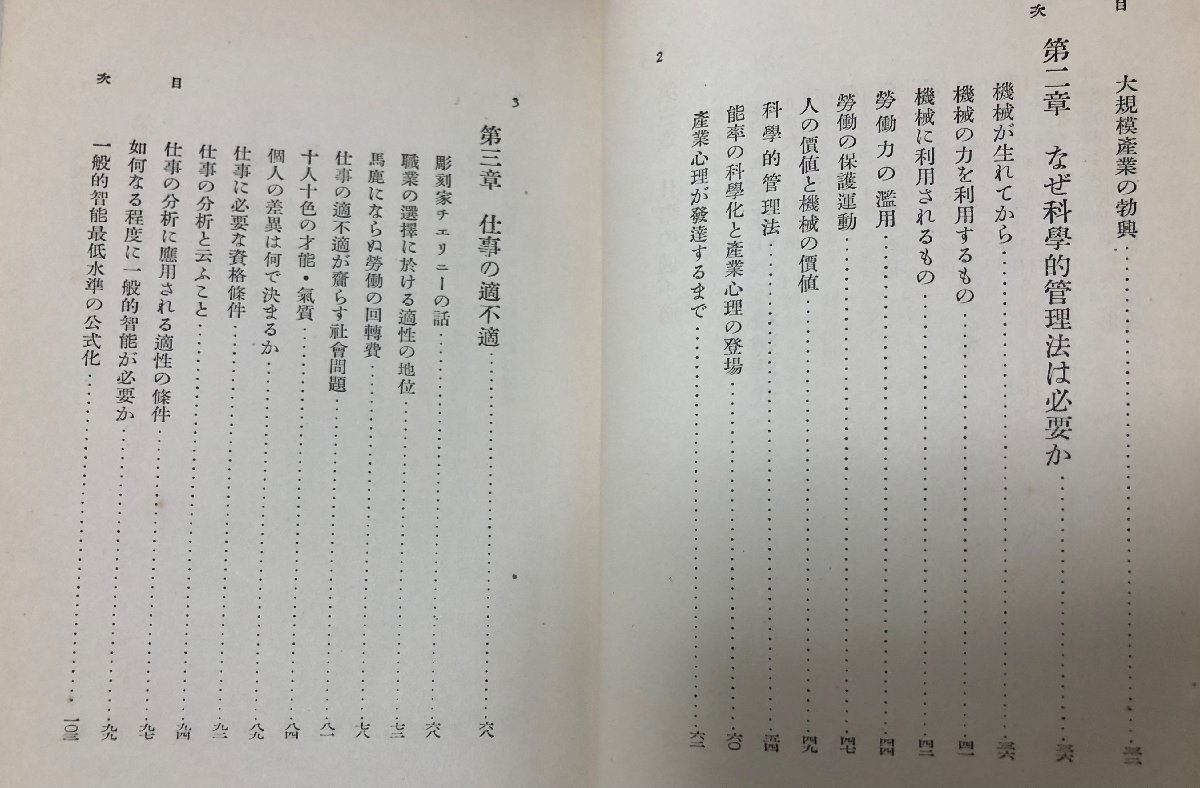 目次
大規模產業の勃興……三三
第二章 なぜ科學的管理法は必要か……三六
機械が生れてから……三六
機械の力を利用するもの……四一
機械に利用されるもの……四二
勞働力の濫用……四四
勞働の保護運動……四七
人の價値と機械の價値……四九
科學的管理法……五四
能率の科學化と產業心理の登場……六〇
產業心理が發達するまで……六二
2
3
第三章 仕事の適不適……六八
彫刻家チェリニーの話……六八
職業の選擇に於ける適性の地位……七三
馬鹿にならぬ勞働の回轉費……七八
仕事の適不適が齎らす社會問題……八一
十人十色の才能・氣質……八四
個人の差異は何で決まるか……八九
仕事に必要な資格條件……九二
仕事の分析と云ふこと……九四
仕事の分析に應用される適性の條件……九七
如何なる程度に一般的智能が必要か……九九
一般的智能最低水準の公式化……一〇三
目次